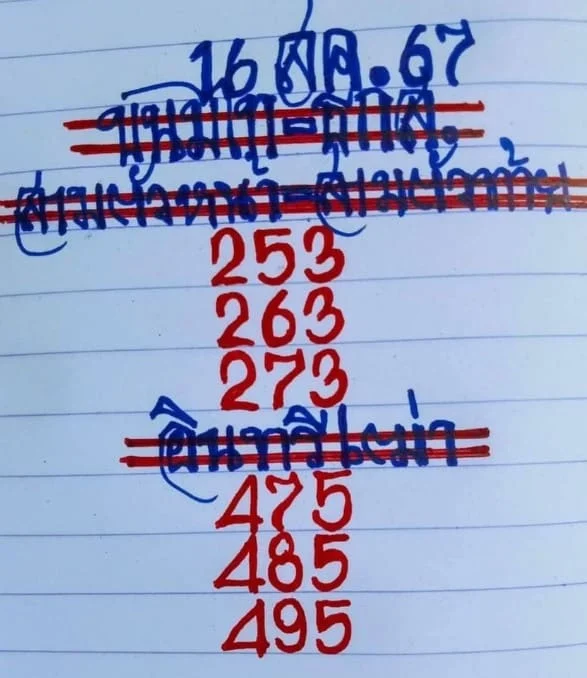 16 สค.67
สามตัวหน้า-สามตัวท้าย
253
263
273
อินทรีเฒ่า
475
485
495